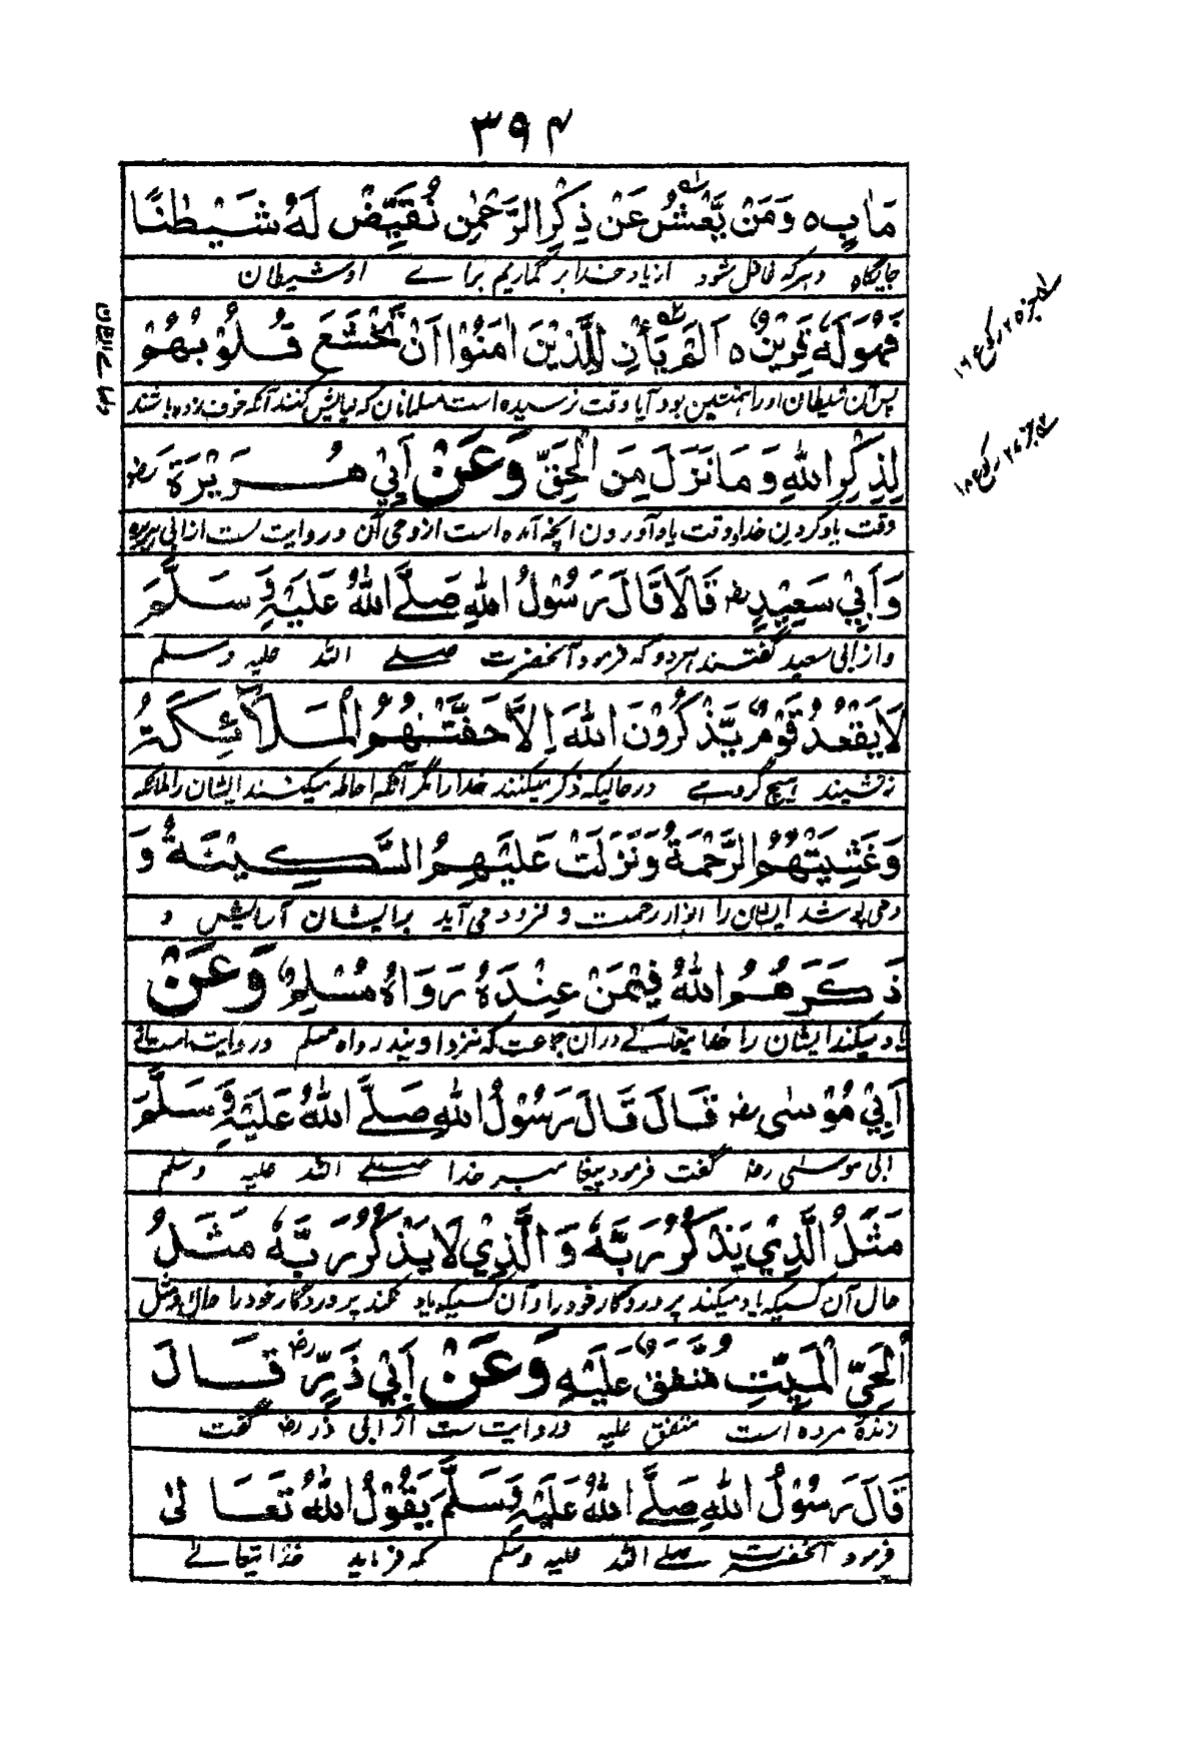 ۳۹۴
مَاٰبٍ ہ وَمَنْ يَّعْشُ عَنْ ذِكْرِ الرَّحْمٰنِ نُقَيِّضْ لَهٗ شَيْطٰنًا
جایگاه وهرکه غافل شود از یاد خدا بر گماریم براے او شیطان
فَهُوَ لَهٗ قَرِيْنٌ ہ اَلَمْ يَأْنِ لِلَّذِيْنَ اٰمَنُوْا اَنْ تَخْشَعَ قُلُوْبُهُمْ
پس آن شیطان او را همنشین بود آیا وقت نرسیده است مسلمانان که نیایش کنند آنکه خوف زده باشند
لِذِكْرِ اللهِ وَمَا نَزَلَ مِنَ الْحَقِّ وَعَنْ اَبِيْ هُرَيْرَةَ رض
وقت یاد کردن خدا و وقت یاد آوردن آنچه آمده است از وحی آن و روایت ست از ابی هریره
وَاَبِيْ سَعِيْدٍ رض قَالَا قَالَ رَسُوْلُ اللهِ صَلَّے اللهُ عَلَيْهِ وَسَلَّمَ
و از ابی سعید گفتند هردو که فرمود آنحضرت صلے الله علیه وسلم
لَا يَقْعُدُ قَوْمٌ يَّذْكُرُوْنَ اللهَ اِلَّا حَفَّتْهُمُ الْمَلَآئِكَةُ
ننشیند هیچ گروہے در حالیکه ذکر میکنند خدا را مگر آنکه احاطه میکنند ایشان را ملائکه
وَغَشِيَتْهُمُ الرَّحْمَةُ وَنَزَلَتْ عَلَيْهِمُ السَّكِيْنَةُ وَ
و می پوشد ایشان را انوار رحمت و فرود می آید بر ایشان آرامیش و
ذَكَرَهُمُ اللهُ فِيْمَنْ عِنْدَهٗ رَوَاهُ مُسْلِمٌ وَعَنْ
یاد میکند ایشان را خدایتعالے در آن جماعت که نزد اویند رواه مسلم و روایت است از
اَبِيْ مُوْسٰى رض قَالَ قَالَ رَسُوْلُ اللهِ صَلَّے اللهُ عَلَيْهِ وَسَلَّمَ
ابی موسیٰ رض گفت فرمود پیغامبر خدا صلے الله علیه وسلم
مَثَلُ الَّذِيْ يَذْكُرُ رَبَّهٗ وَالَّذِيْ لَا يَذْكُرُ رَبَّهٗ مَثَلُ
حال آن کسیکه یاد میکند پروردگار خود را و آن کسیکه یاد نکند پروردگار خود را حال و مثل
الْحَيِّ الْمَيِّتِ مُتَّفَقٌ عَلَيْهِ وَعَنْ اَبِيْ ذَرٍّ رض قَالَ
زنده مرده است متفق علیه و روایت ست از ابی ذر رض گفت
قَالَ رَسُوْلُ اللهِ صَلَّے اللهُ عَلَيْهِ وَسَلَّمَ يَقُوْلُ اللهُ تَعَالٰى
فرمود آنحضرت صلے الله علیه وسلم که فرماید خدایتعالے